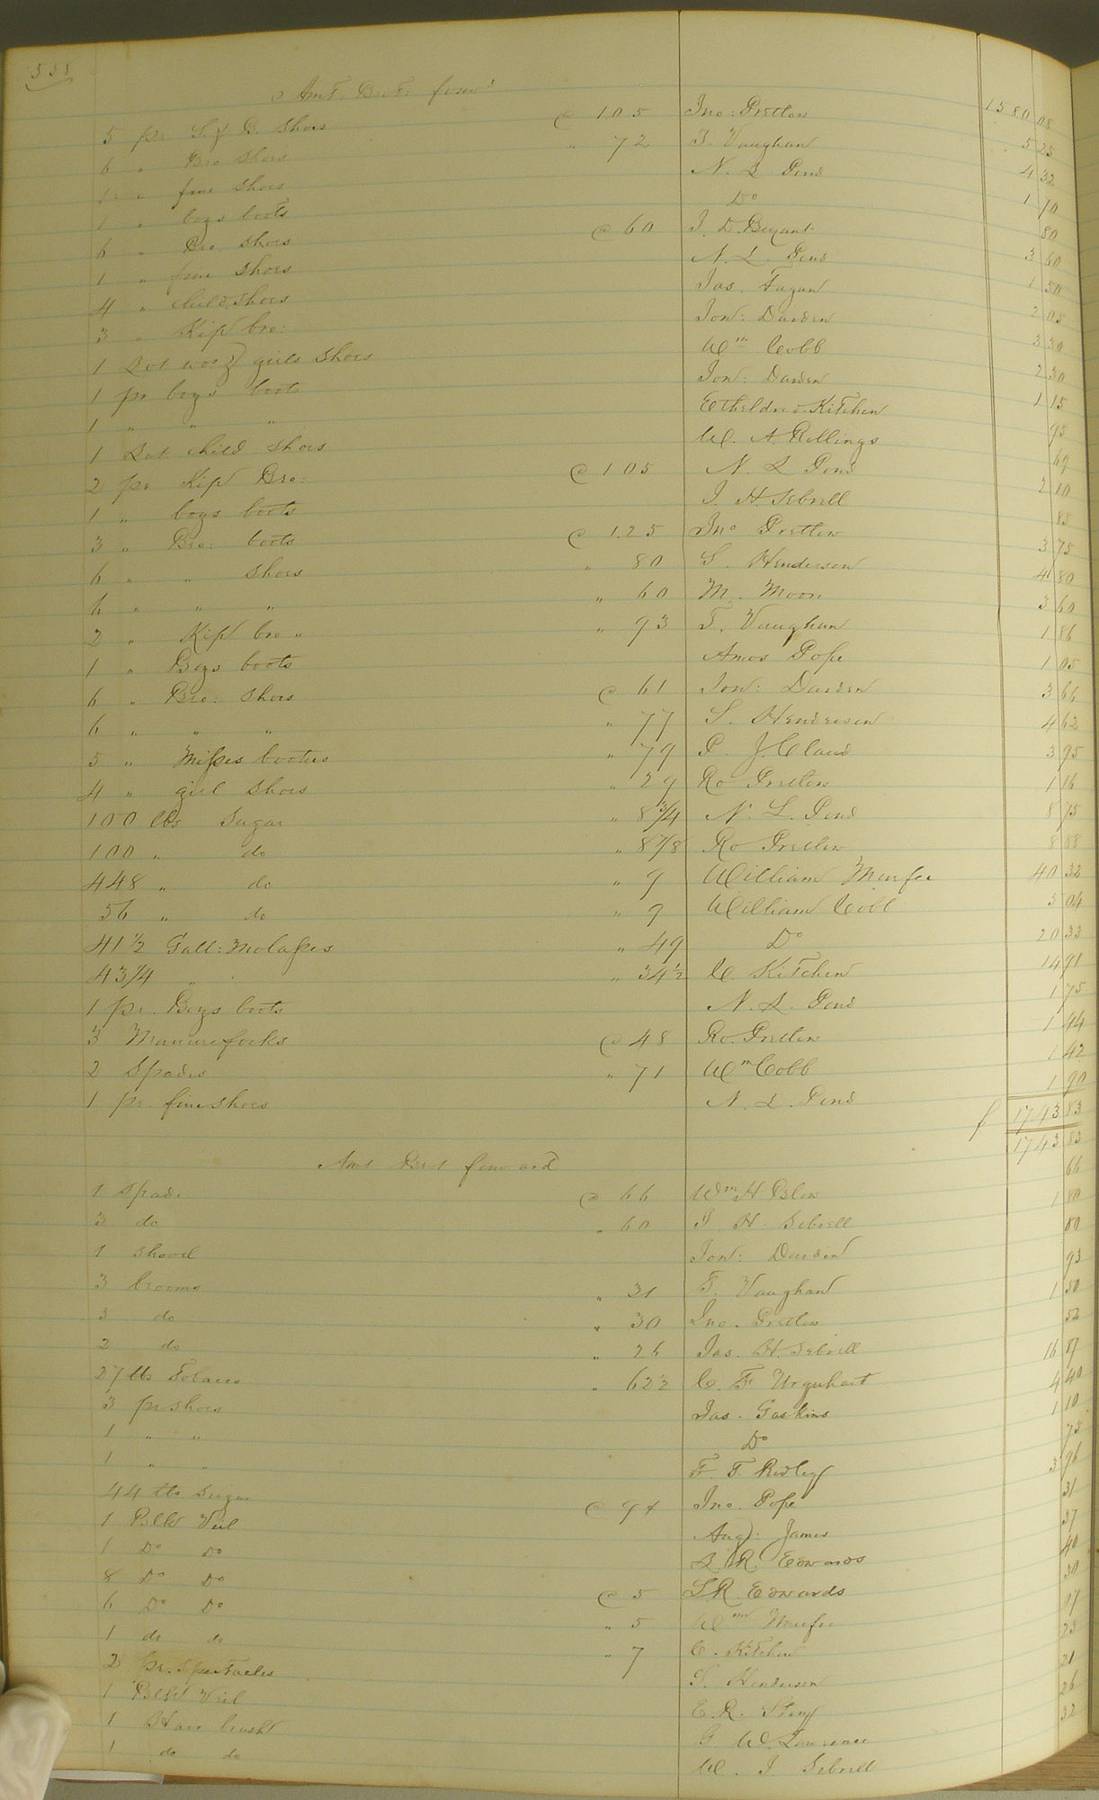 538
Amt. Brot. forwd 1580 08
5 pr S. & B. Shoes @ 105 Jno: Pretlow 5 25
6 " Bro Shoes " 72 T. Vaughan 4 32
1 pr " fine Shoes N. L Pond 1 10
1 " boys boots Do 80
6 " Bro. Shoes @ 60 J. D. Bryant 3 60
1 " fine Shoes N. L. Pond 1 50
4 " child. Shoes Jas. Fagan 2 05
3 " Kip bro: Jon: Darden 3 30
1 Lot wos girls Shoes Wm Cobb 2 30
1 pr boys boots Jon: Darden 1 15
1 " " " Etheldred Kitchen 95
1 Lot child Shoes W. A. Rollings 69
2 pr Kip Bro: @ 105 N. L Pond 2 10
1 " boys boots J. H. Sebrell 85
3 " Bro: boots @ 1.25 Jno Pretlow 3 75
6 " " Shoes " 80 S. Henderson 4 80
6 " " " " 60 M. Moon 3 60
2 " Kip bro " " 93 T. Vaughan 1 86
1 " Boys boots Amos Pope 1 05
6 " Bro: Shoes @ 61 Jon: Darden 3 66
6 " " " " 77 S. Henderson 4 62
5 " Misses bootees " 79 P. J. Claud 3 95
4 " girl Shoes " 29 Ro Pretlow 1 16
100 lbs Sugar " 8 3/4 N. L. Pond 8 75
100 " do " 8 7/8 Ro Pretlow 8 88
448 " do " 9 William Murfee 40 32
56 " do " 9 William Cobb 5 04
41 1/2 Gall: Molasses " 49 Do 20 33
43 1/4 " " 34 1/2 C Kitchen 14 91
1 pr. Boys boots N. L. Pond 1 75
3 Manure forks @ 48 Ro. Pretlow 1 44
2 Spades " 71 Wm Cobb 1 42
1 pr. fine shoes N. L. Pond 1 90
1743 83
Amt Brot forward 1743 83
1 Spade @ 66 Wm H 66
3 do " 60 J H Sebrell 1 80
1 Shovel Jon: Darden 50
3 brooms " 31 T. Vaughan 93
3 do " 30 Jno. Pretlow 1 50
2 do " 26 Jas. H. Sebrell 52
27 lbs Tobacco " 62 1/2 C. F. Urquhart 16 87
3 pr shoes Jas. Gaskins 4 40
1 " " Do 1 10
1 " " F. T. Ridley 75
44 lbs Sugar @ 9 Jno. Pope 3 96
1 Veil Aug: James 31
1 Do Do L. R. Edwards 37
8 Do Do @ 5 S R. Edwards 40
6 Do Do " 5 Wm Murfee 30
1 do do " 7 C. Kitchen
2 pr. Spectacles S. Henderson
1 Veil E. R.
1 Hair brush G. W. Lawrence
1 do do W. J Sebrell 32